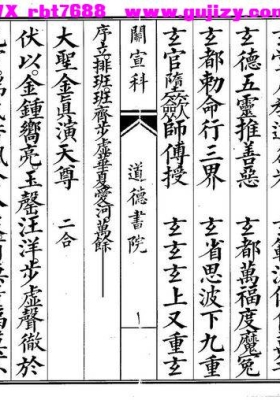 X_rbt7688 www.gujizy.com
玄德五靈推善惡 玄都萬福度魔冤
玄都勅命行三界 玄省思波下九重
玄官 師傳授 玄玄玄上又重玄
關宣科 道德書院
序立排班班齊步虛 夏愛河萬餘
大聖金真演天尊 二合
伏以。金鍾響亮玉磬汪洋步虛聲徹於